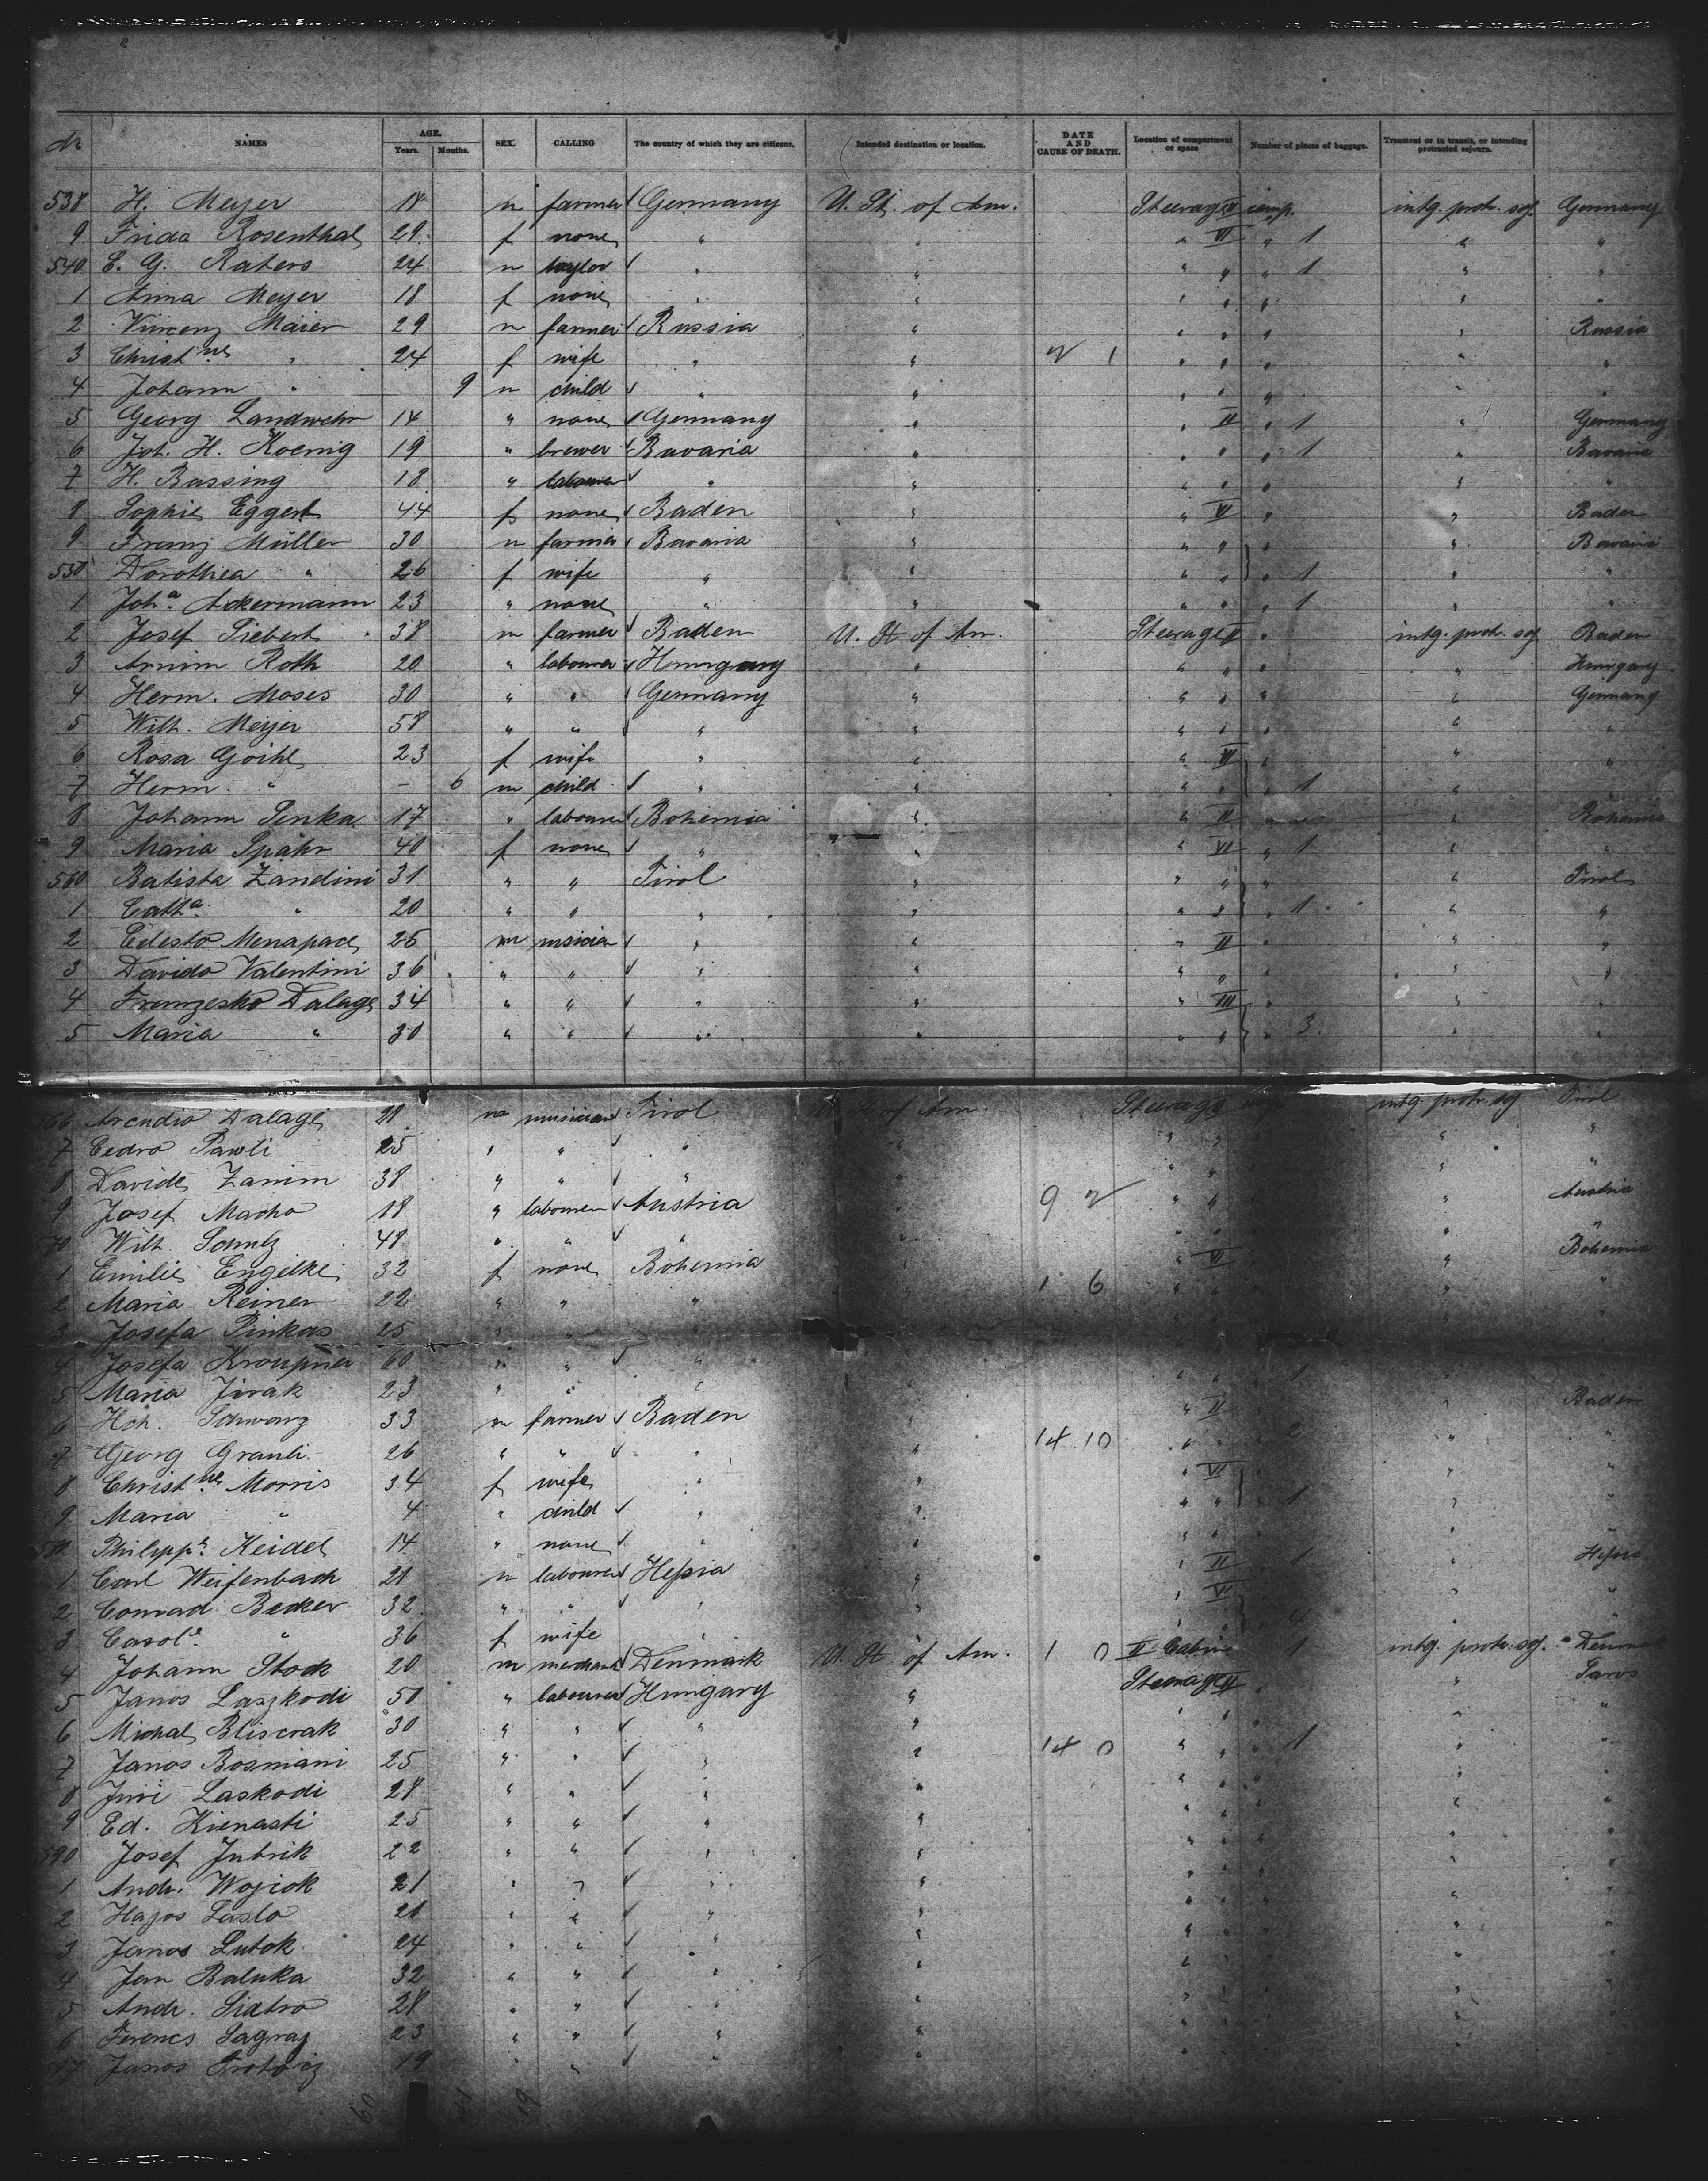 № NAMES AGE. Years. Months. SEX. CALLING The country of which they are citizens. Intended destination or location. DATE AND CAUSE OF DEATH. Location of compartment or space Number of pieces of baggage. Transient or in transit, or intending protracted sojourn.
538 H. Meyer 18 m farmer Germany U. St. of Am. Steerage II comp. intg. protr. soj. Germany
9 Frida Rosenthal 29 f none " " " VI " 1 " "
540 E. G. Raters 24 m taylor " " " " " 1 " "
1 Anna Meyer 18 f none " " " " " " "
2 Vincenz Maier 29 m farmer Russia " " " " " Russia
3 Christ.ne " 24 f wife " " " " " " "
4 Johann " 9 m child " " " " " " "
5 Georg Landwehr 14 " none Germany " " II " 1 " Germany
6 Joh. H. Koenig 19 " brewer Bavaria " " " " 1 " Bavaria
7 H. Bassing 18 " labourer " " " " " " "
8 Sophie Eggert 44 f none Baden " " VI " " Baden
9 Franz Müller 30 m farmer Bavaria " " " " " Bavaria
550 Dorothea " 26 f wife " " " " " 1 " "
1 Joh.a Ackermann 23 " none " " " " " 1 " "
2 Josef Siebert 38 m farmer Baden U. St. of Am. Steerage II " intg. protr. soj Baden
3 Armin Roth 20 " labourer Hungary " " " " " Hungary
4 Herm. Moses 30 " " Germany " " " " " Germany
5 Wilh. Meyer 58 " " " " " " " " "
6 Rosa Goihl 23 f wife " " " VI " " "
7 Herm. " – 6 m child " " " " " 1 " "
8 Johann Senka 17 " labourer Bohemia " " II " " Bohemia
9 Maria Spähr 40 f none " " " VI " 1 " "
560 Batista Zandini 31 " " Tirol " " " " " Tirol
1 Cath.a " 20 " " " " " " " 1 " "
2 Celesto Menapace 25 m musician " " " II " " "
3 Davido Valentini 36 " " " " " " " " "
4 Franzesko Dalage 34 " " " " " III " " "
5 Maria " 30 " " " " " " " 3 " "
566 Arcadio Dalage 21 m musician Tirol U. St. of Am. Steerage intg. protr. soj Tirol
7 Cedro Pawli 25 " " " " " " " "
8 Davide Zanim 38 " " " " " " "
9 Josef Macho 18 " labourer Austria 9 " " " Austria
570 Wilh. Schulz 48 " " " " " "
1 Emilie Engelke 32 f none Bohemia " VI " Bohemia
2 Maria Reiner 22 " " " 1 6 " " "
3 Josefa Pinkas 25
4 Josefa Kroupner 60 " " " "
5 Maria Jirak 23 " " " " 1
6 Hch. Schwarz 33 m farmer Baden " " II " Baden
7 Georg Grauli 26 " " " " 14 10 " " 2 " "
8 Christ.ne Morris 34 f wife " " " VI " "
9 Maria " 4 " child " " " " 1 " "
580 Philipp.e Keidel 14 " none " " " " "
1 Carl Weifenbach 21 m labourer Hessia " " II 1 " Hessia
2 Conrad Becker 32 " " " " " VI " "
3 Carol.e " 36 f wife " "
4 Johann Stock 20 m merchant Denmark U. St. of Am. 1 0 II Cabine 1 intg. protr. soj. Denmark
5 Janos Laszkodi 50 " labourer Hungary " Steerage II " Saros
6 Michal Bliscrak 30 " " " " " " " " "
7 Janos Bosmani 25 " " " " 14 0 " " 1 " "
8 Juri Laskodi 28 " " " " " " " "
9 Ed. Kienasti 25 " " " " " " " "
590 Josef Jubrik 22 " " " " " " " "
1 Andr. Wojiok 21 " " " " " " " "
2 Hajos Laslo 21 " " " " " " " "
3 Janos Lutok 24 " " " " " " " "
4 Jan Baluka 32 " " " " " " " "
5 Andr. Siatro 28 " " " " " " "
6 Ferencs Sagray 23 " " " " " " "
597 Janos 19 " " " " "